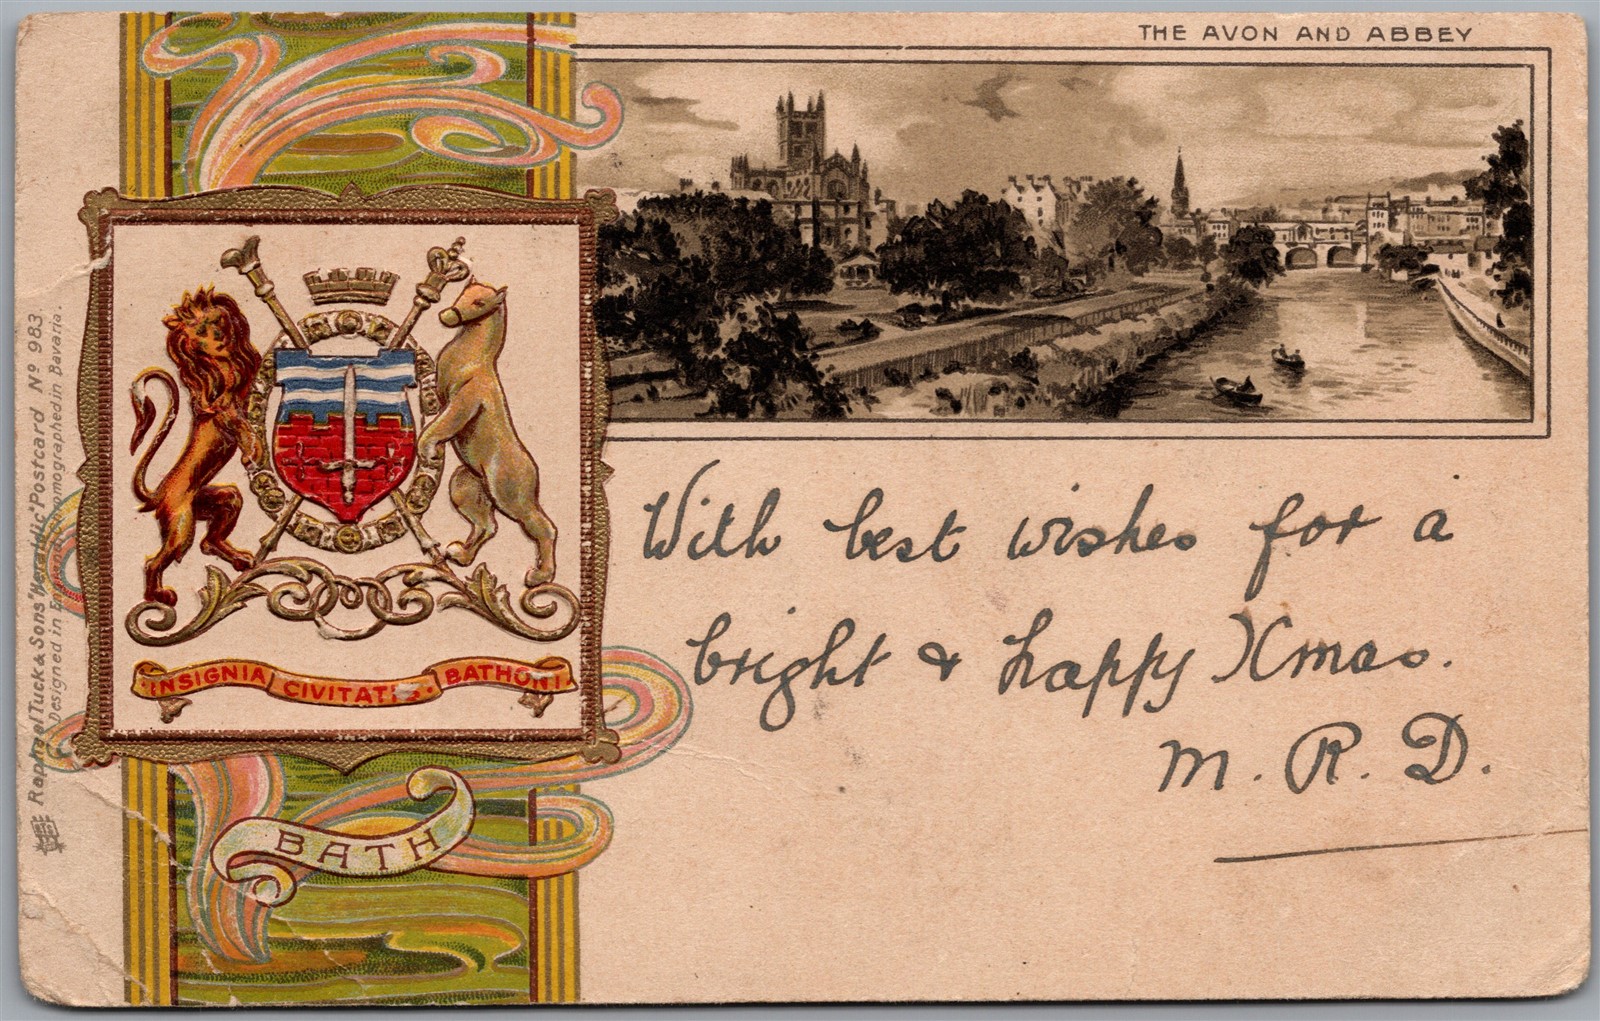 THE AVON AND ABBEY
With best wishes for a
bright & happy Xmas.
M. R. D.
INSIGNIA CIVITATIS. BATHONI
BATH
Raphael Tuck & Sons' "Heraldic" Postcard No 983.
Designed in England Chromographed in Bavaria.